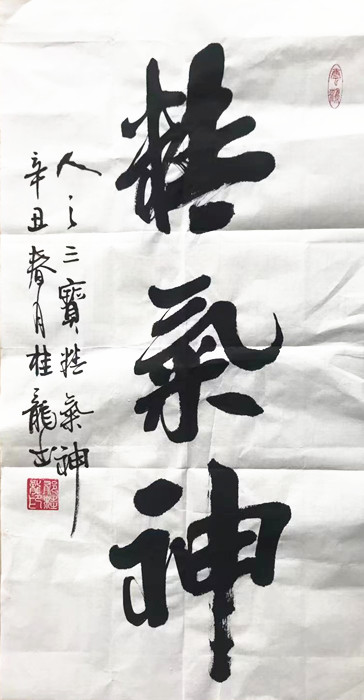 精氣神
人之三寶精氣神
辛丑春月桂龍書